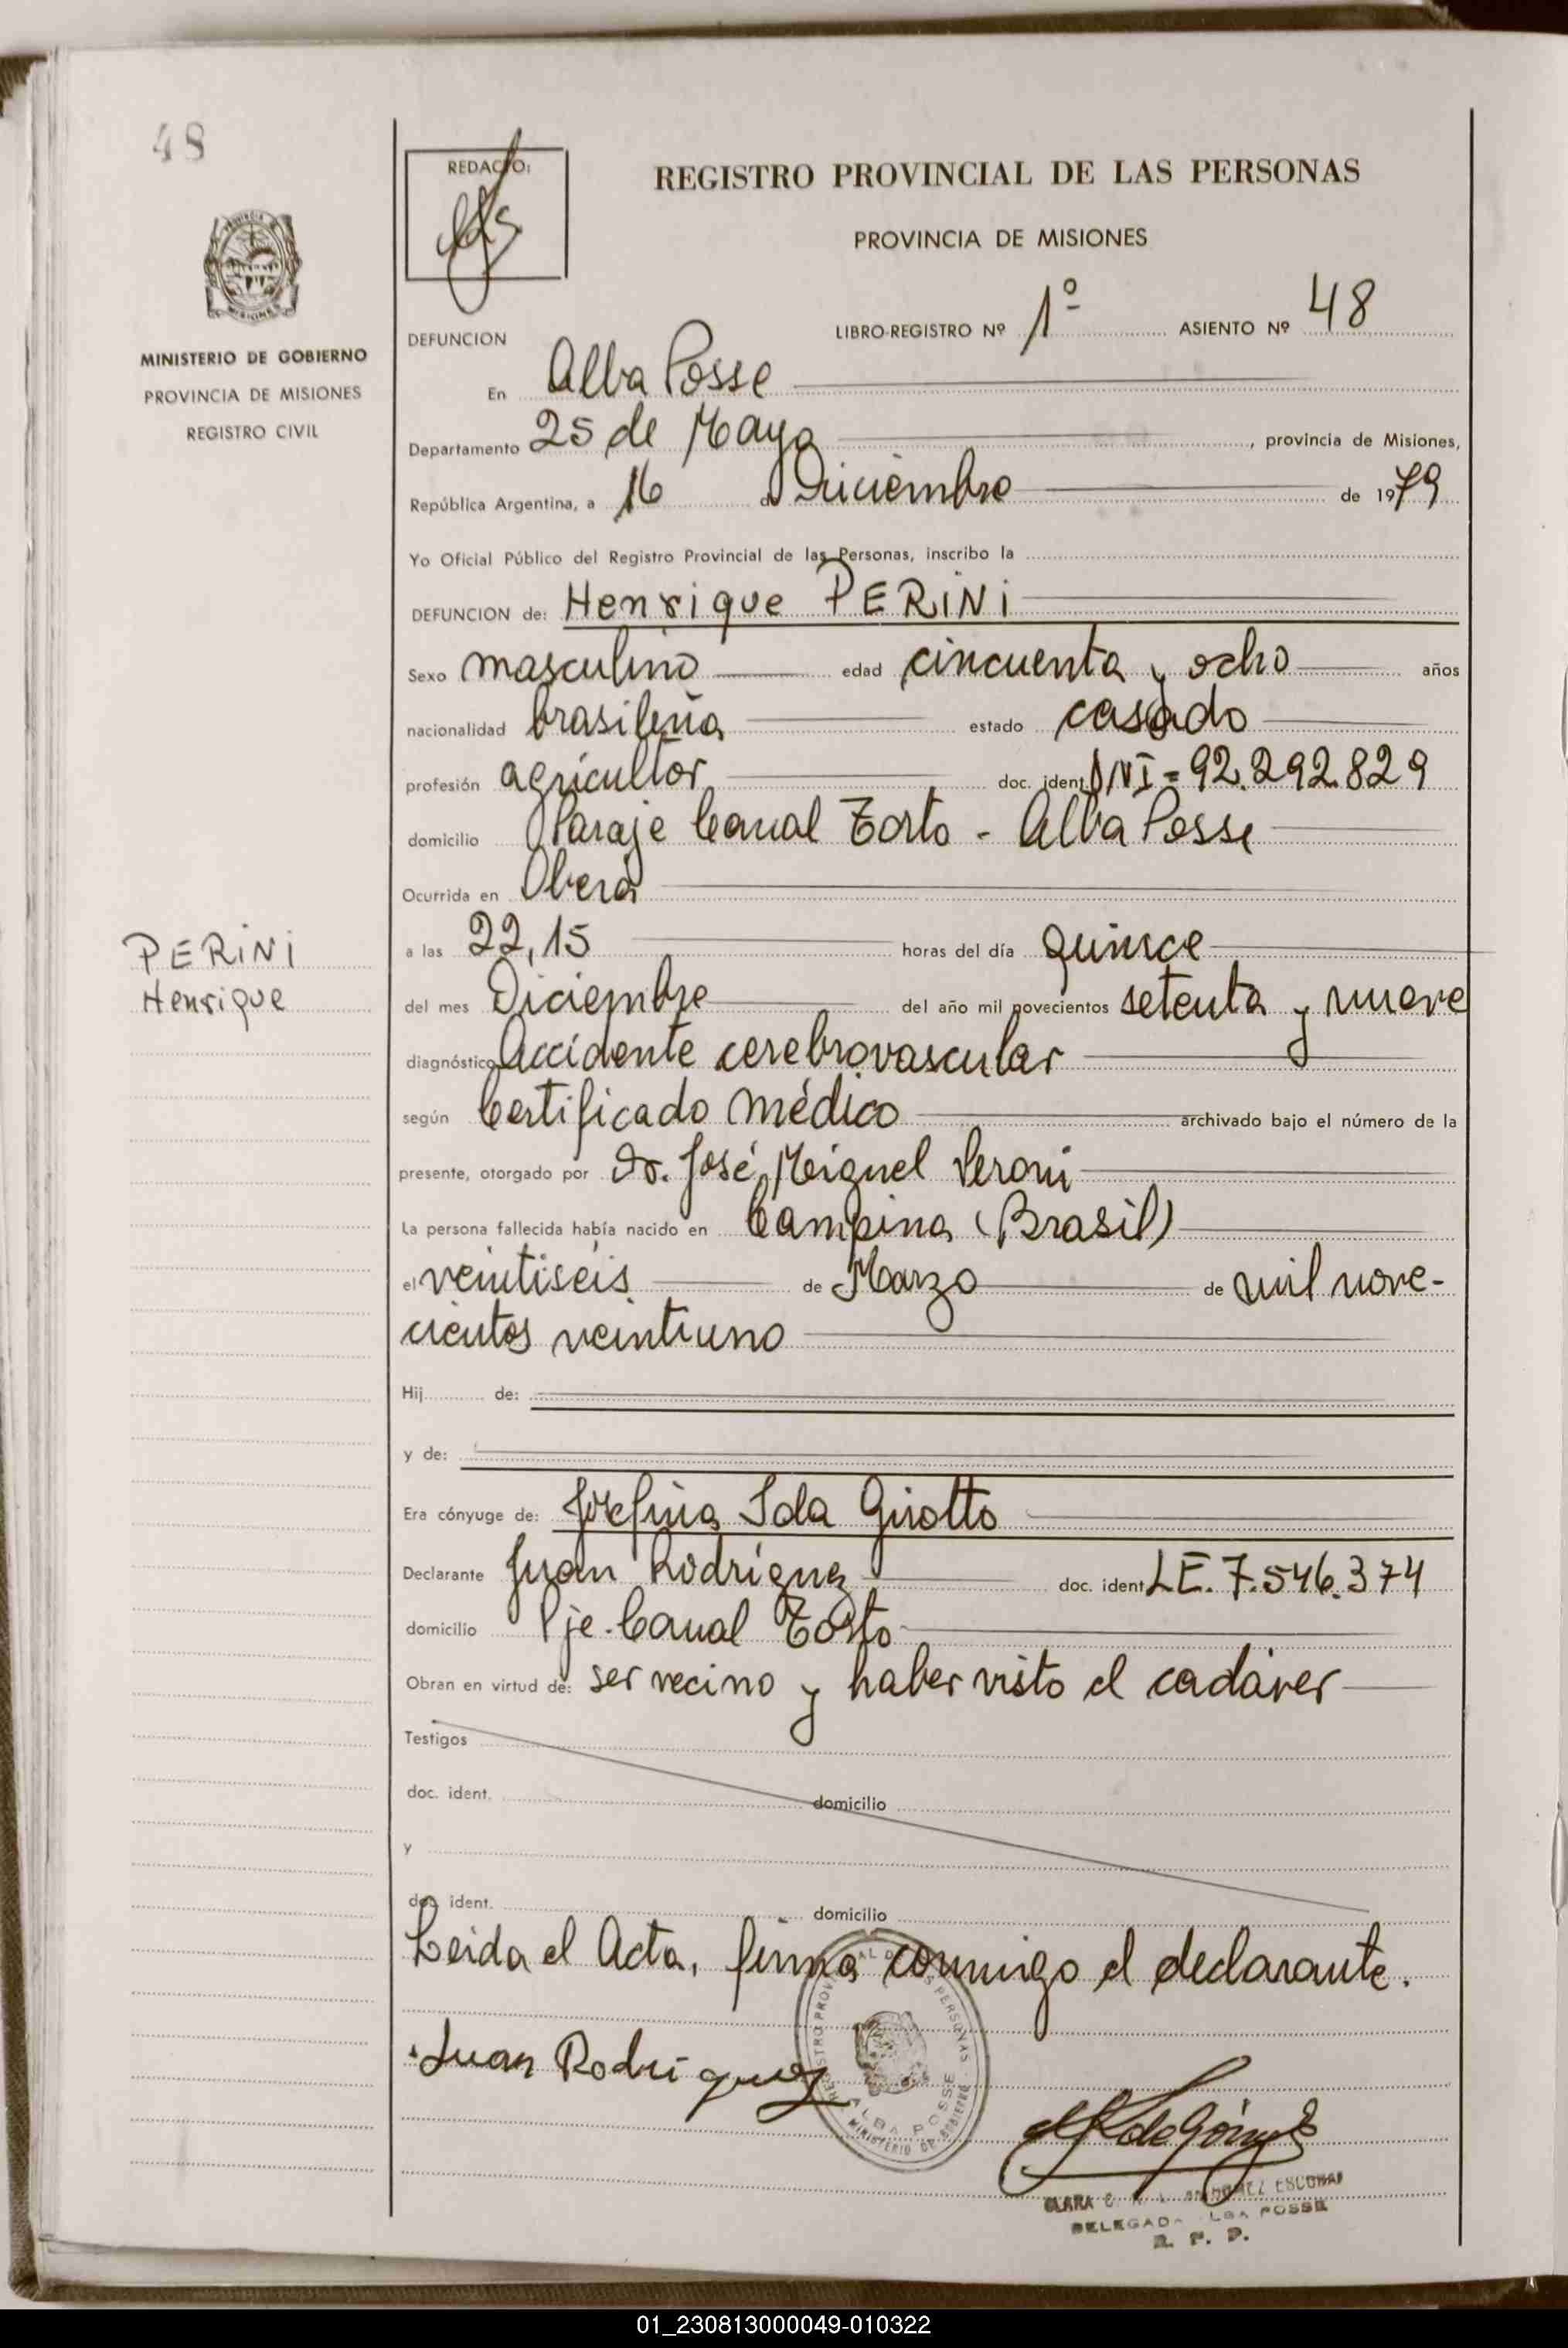 48
REDACTO:
REGISTRO PROVINCIAL DE LAS PERSONAS
PROVINCIA DE MISIONES
MINISTERIO DE GOBIERNO
PROVINCIA DE MISIONES
REGISTRO CIVIL
LIBRO-REGISTRO Nº 1º ASIENTO Nº 48
DEFUNCION
En Alba Posse
Departamento 25 de Mayo, provincia de Misiones,
República Argentina, a 16 de Diciembre de 1979
Yo Oficial Público del Registro Provincial de las Personas, inscribo la
DEFUNCION de: Henrique PERINI
Sexo masculino edad cincuenta y ocho años
nacionalidad brasileña estado casado
profesión agricultor doc. ident. DNI = 92.292.829
domicilio Paraje Canal Torto - Alba Posse
Ocurrida en Oberá
PERINI
Henrique
a las 22,15 horas del día quinsce
del mes Diciembre del año mil novecientos setenta y nueve
diagnóstico Accidente cerebrovascular
según Certificado médico archivado bajo el número de la
presente, otorgado por Dr. José Miguel
La persona fallecida había nacido en Campina (Brasil)
el veintiseis de Marzo de mil nove-
cientos veintiuno
Hij de:
y de:
Era cónyuge de: Josefina Ida Girotto
Declarante Juan Rodriguez doc. ident. LE. 7.546.374
domicilio Pje. Canal Torto
Obran en virtud de: ser vecino y haber visto el cadáver
Testigos
doc. ident. domicilio
y
doc. ident. domicilio
Leida el Acta, firma conmigo el declarante.
Juan Rodriguez
REGISTRO PROVINCIAL DE LAS PERSONAS
ALBA POSSE
MINISTERIO DE GOBIERNO
de Gómez
CLARA GOMEZ ESCOBAR
DELEGADA ALBA POSSE
R. P. P.
01_230813000049-010322